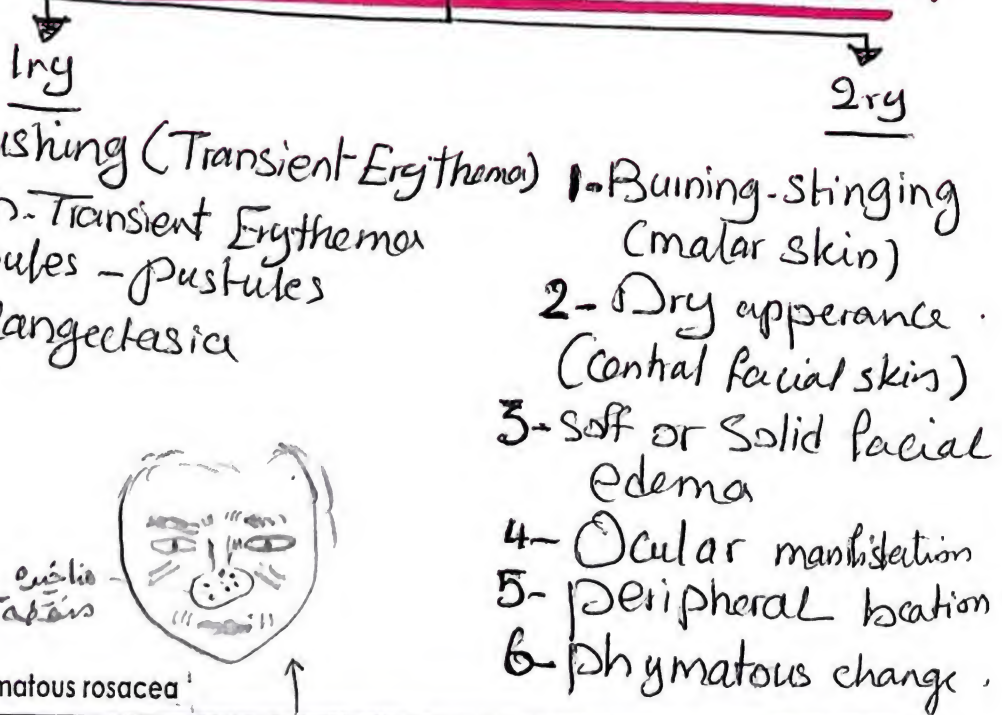 1ry
ushing (Transient Erythema)
n-Transient Erythema
ules - pustules
langectasia
2ry
1- Burning-stinging
(malar skin)
2- Dry apperance .
(Central facial skin)
3- Soft or Solid facial
edema
4- Ocular manifistation
5- peripheral location
6- phymatous change .
مناخيره
matous rosacea